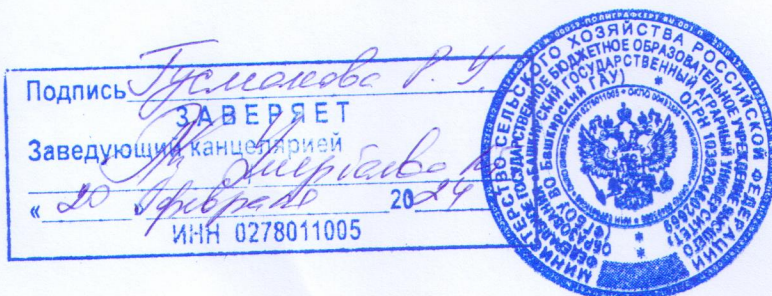 Подпись Гусманова Р. У.
ЗАВЕРЯЕТ
Заведующий канцелярией
« 20 » февраля 2024
ИНН 0278011005
МИНИСТЕРСТВО СЕЛЬСКОГО ХОЗЯЙСТВА РОССИЙСКОЙ ФЕДЕРАЦИИ
ФЕДЕРАЛЬНОЕ ГОСУДАРСТВЕННОЕ БЮДЖЕТНОЕ ОБРАЗОВАТЕЛЬНОЕ УЧРЕЖДЕНИЕ ВЫСШЕГО
ОБРАЗОВАНИЯ «БАШКИРСКИЙ ГОСУДАРСТВЕННЫЙ АГРАРНЫЙ УНИВЕРСИТЕТ»
(ФГБОУ ВО Башкирский ГАУ)